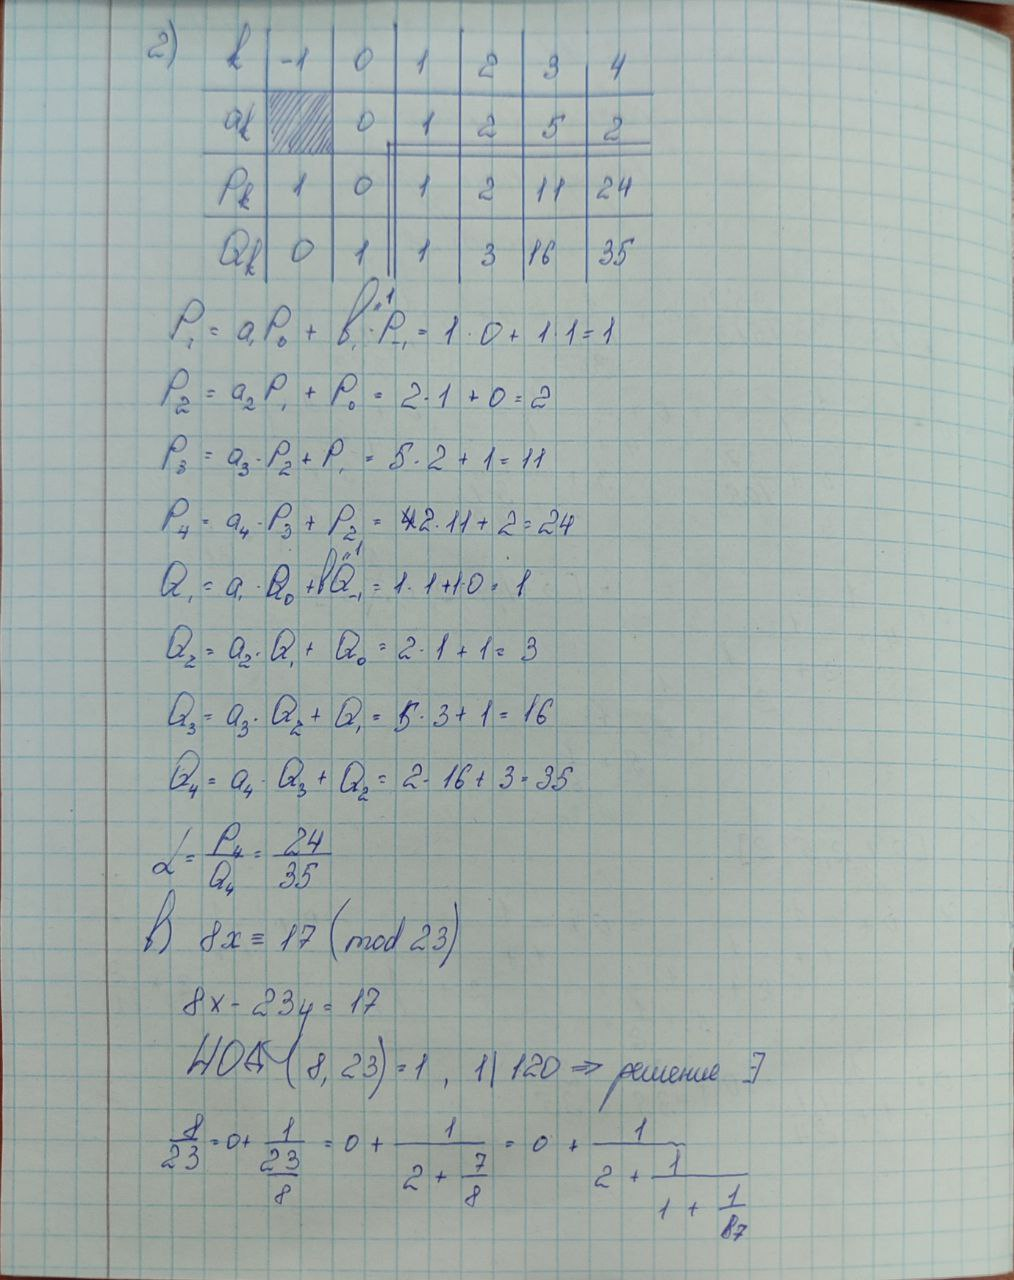 2) k -1 0 1 2 3 4
ak 0 1 2 5 2
Pk 1 0 1 2 11 24
Qk 0 1 1 3 16 35
P₁ = a₁P₀ + b₁·P₋₁ = 1·0 + 1·1 = 1
P₂ = a₂P₁ + P₀ = 2·1 + 0 = 2
P₃ = a₃·P₂ + P₁ = 5·2 + 1 = 11
P₄ = a₄·P₃ + P₂ = 2·11 + 2 = 24
Q₁ = a₁·Q₀ + bQ₋₁ = 1·1 + 1·0 = 1
Q₂ = a₂·Q₁ + Q₀ = 2·1 + 1 = 3
Q₃ = a₃·Q₂ + Q₁ = 5·3 + 1 = 16
Q₄ = a₄·Q₃ + Q₂ = 2·16 + 3 = 35
α = P₄/Q₄ = 24/35
в) 8x ≡ 17 (mod 23)
8x - 23y = 17
НОД (8, 23) = 1 , 1 | 120 ⇒ решение ∃
8/23 = 0 + 1/(23/8) = 0 + 1/(2 + 7/8) = 0 + 1/(2 + 1/(1 + 1/7))